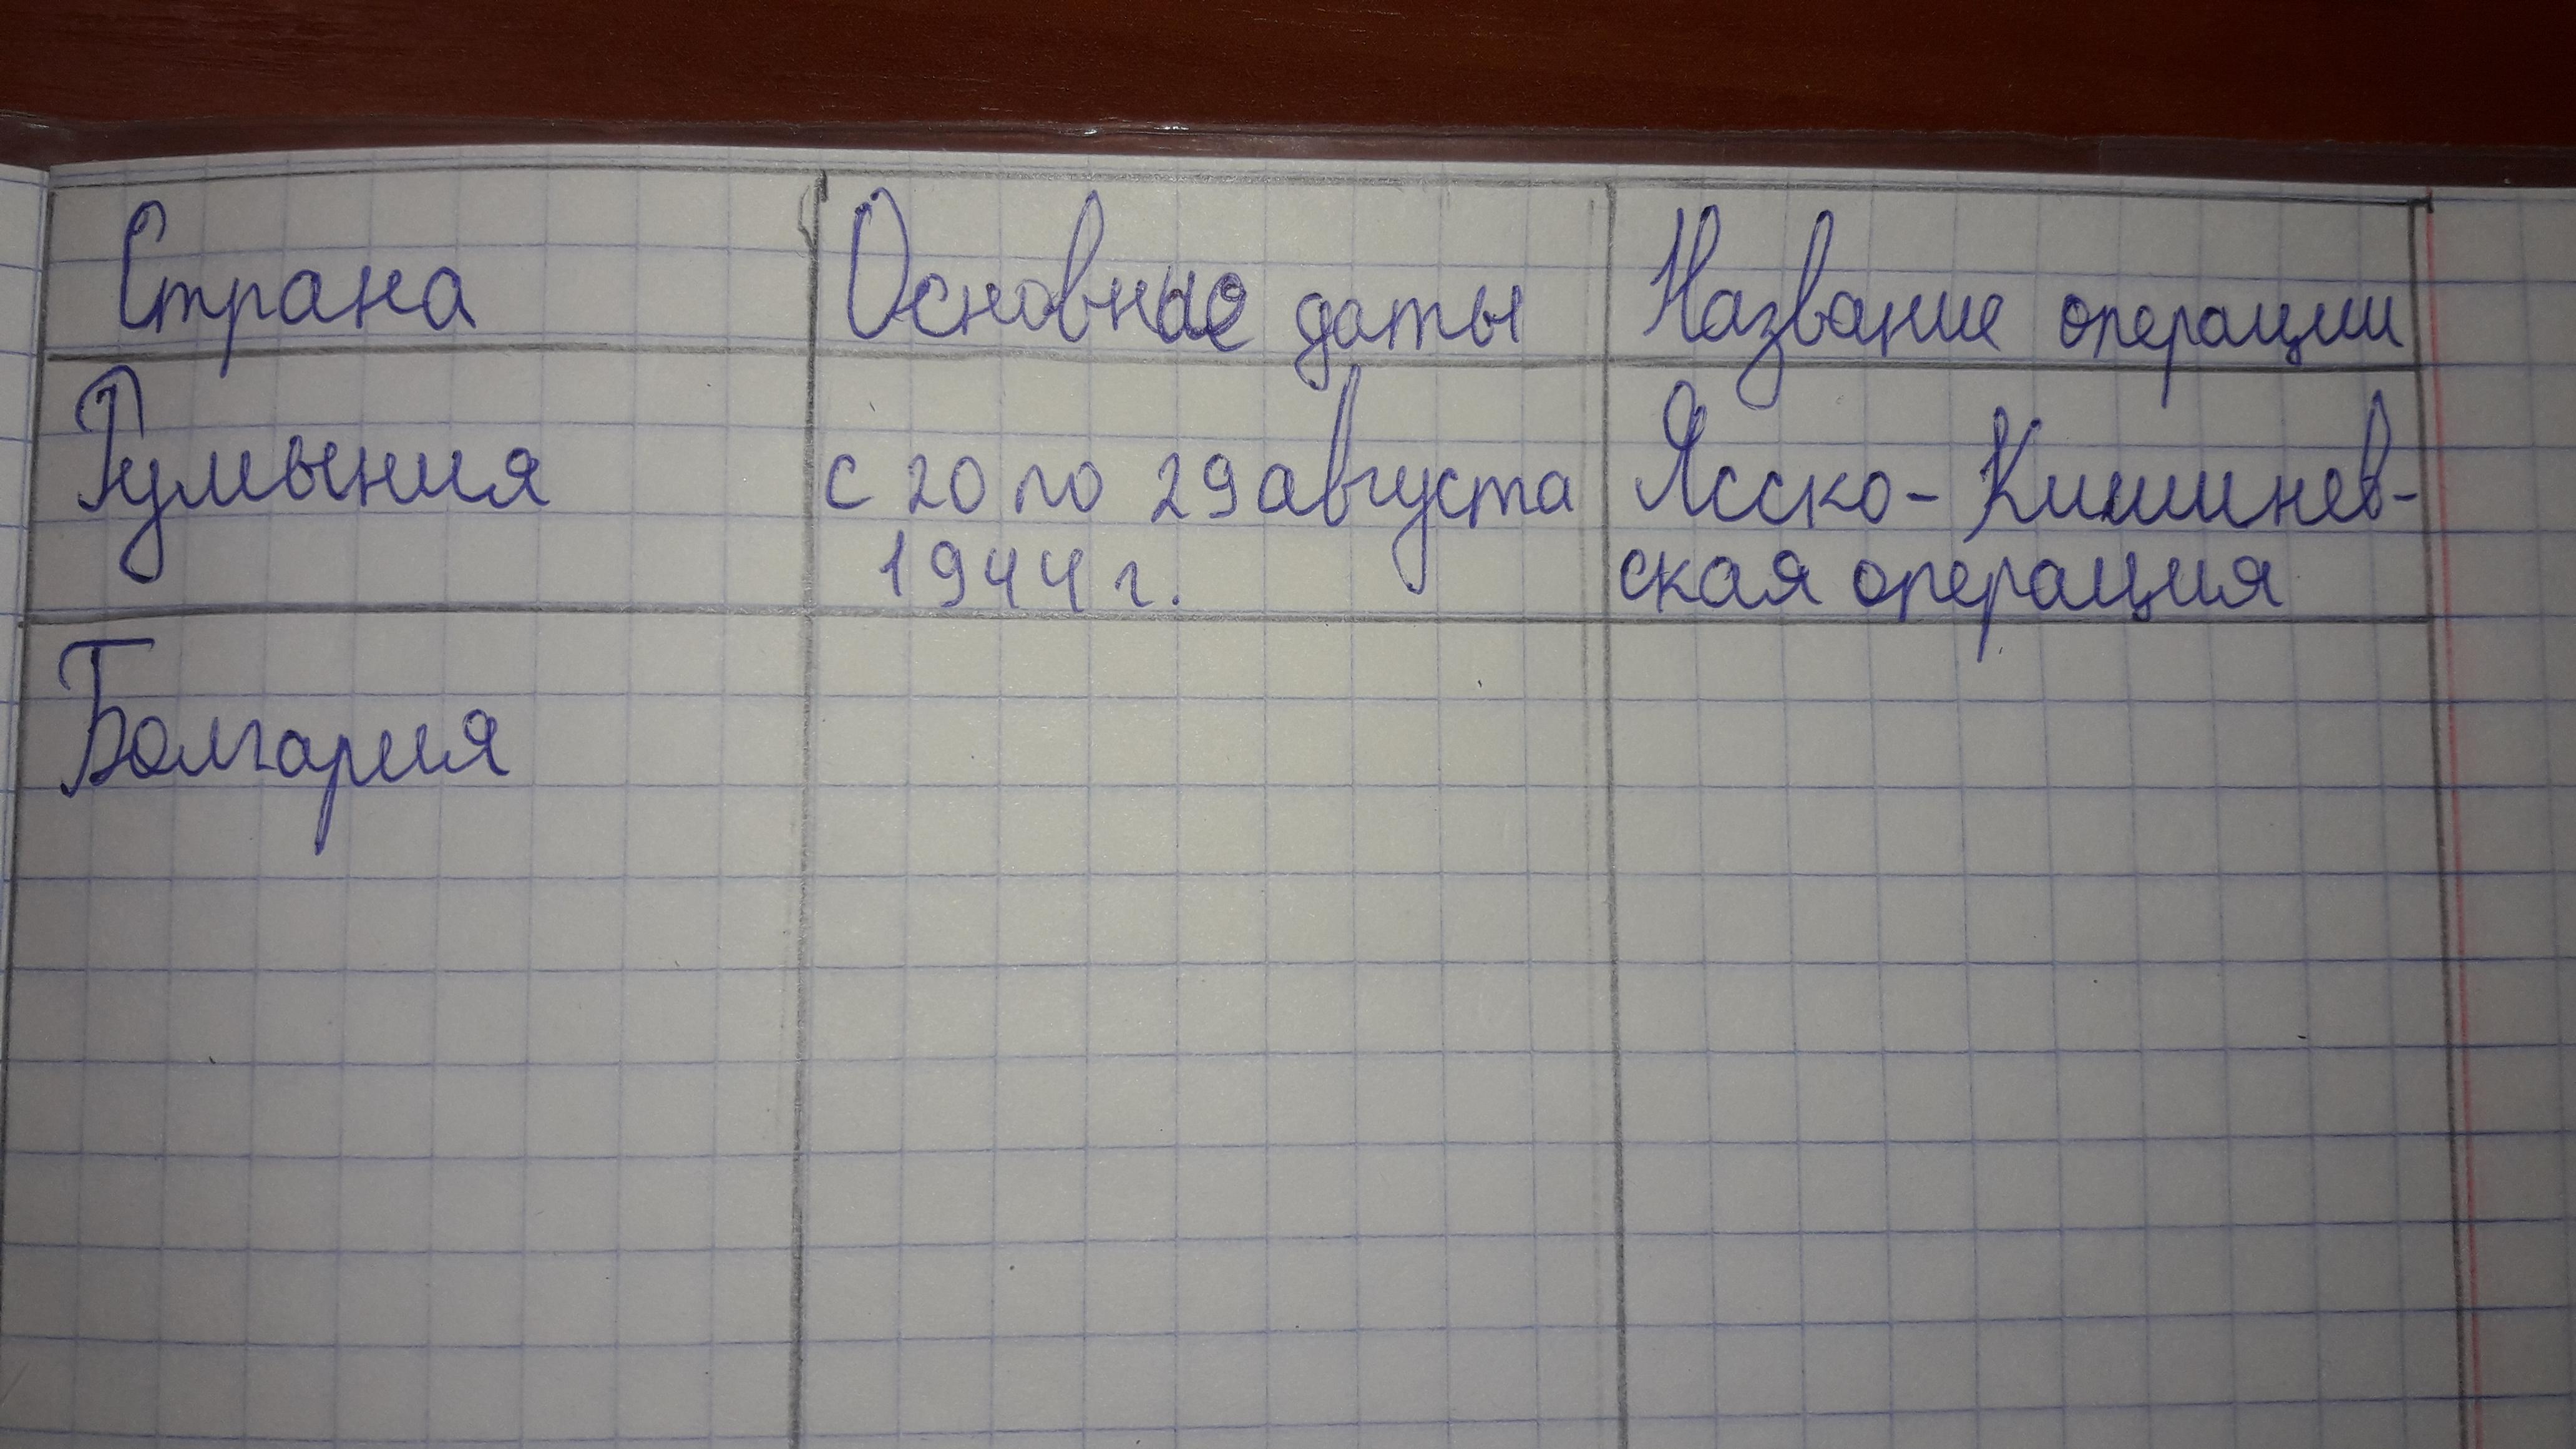 Страна Основные даты Название операции
Румыния с 20 по 29 августа Ясско-Кишинев-
1944 г. ская операция
Болгария